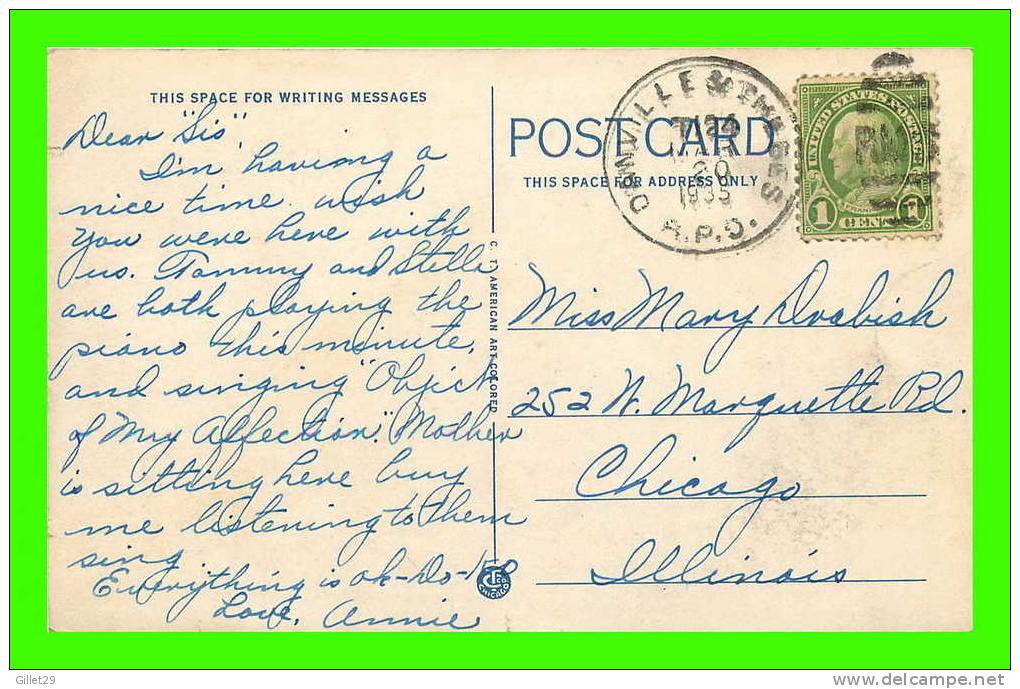 THIS SPACE FOR WRITING MESSAGES
Dear "Sis"
I'm having a
nice time wish
you were here with
us. Tommy and Stella
are both playing the
piano this minute,
and singing "Object
of My Affection". Mother
is sitting here buy
me listening to them
sing
Everything is ok-Do-
Love, Annie
C. T. AMERICAN ART COLORED
CHICAGO
POST CARD
THIS SPACE FOR ADDRESS ONLY
1935
R.P.O.
UNITED STATES POSTAGE
1 CENT 1
Miss Mary Drabish
252 W. Marquette Rd.
Chicago
Illinois
Gillet29
delcampe.net